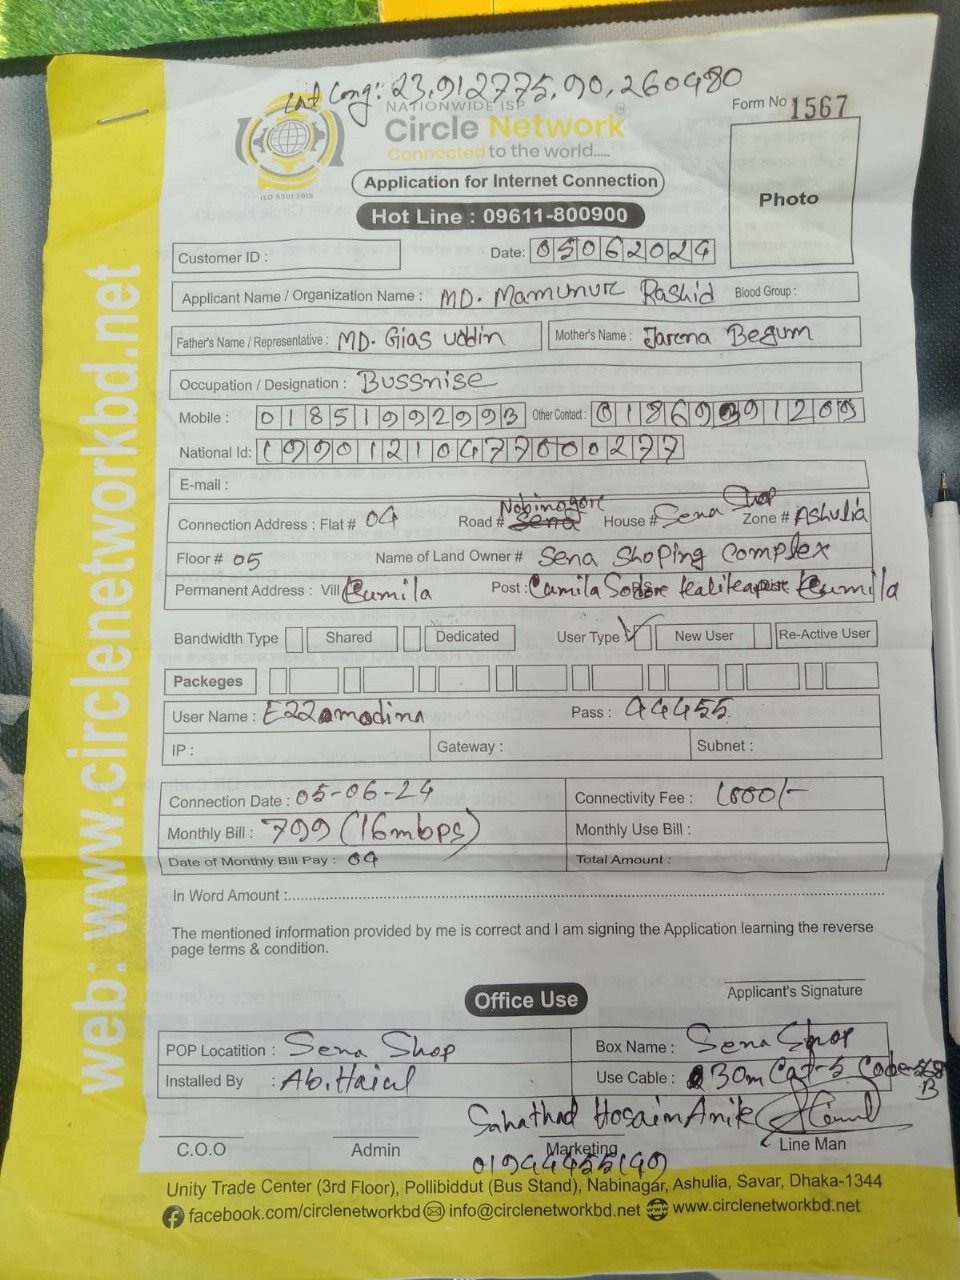 Lat Long: 23.912775, 90.260480
NATIONWIDE ISP
Form No 1567
Circle Network
Connected to the world.....
ISO 9001:2015
Application for Internet Connection
Photo
Hot Line : 09611-800900
Customer ID :
Date: 05062024
Applicant Name / Organization Name : MD. Mamunur Rashid Blood Group :
Father's Name / Representative : MD. Gias uddin Mother's Name : Jarena Begum
Occupation / Designation : Bussnise
Mobile : 01851992993 Other Contact :
National Id: 19901210477000277
E-mail :
Connection Address : Flat # 04 Road # Nobinagore House # Sena Shop Zone # Ashulia
Floor # 05 Name of Land Owner # Sena Shoping Complex
Permanent Address : Vill Cumila Post : Cumila
Bandwidth Type Shared Dedicated User Type ✓ New User Re-Active User
Packeges
User Name : Ezzamadina Pass : 44455
IP : Gateway : Subnet :
Connection Date : 05-06-24 Connectivity Fee : 1000/-
Monthly Bill : 799 (16mbps) Monthly Use Bill :
Date of Monthly Bill Pay : 04 Total Amount :
In Word Amount :
The mentioned information provided by me is correct and I am signing the Application learning the reverse
page terms & condition.
Applicant's Signature
Office Use
POP Locatition : Sena Shop Box Name : Sena Shop
Installed By : Use Cable : 30m Cat-5
C.O.O Admin Marketing Line Man
Unity Trade Center (3rd Floor), Pollibiddut (Bus Stand), Nabinagar, Ashulia, Savar, Dhaka-1344
facebook.com/circlenetworkbd info@circlenetworkbd.net www.circlenetworkbd.net
web: www.circlenetworkbd.net